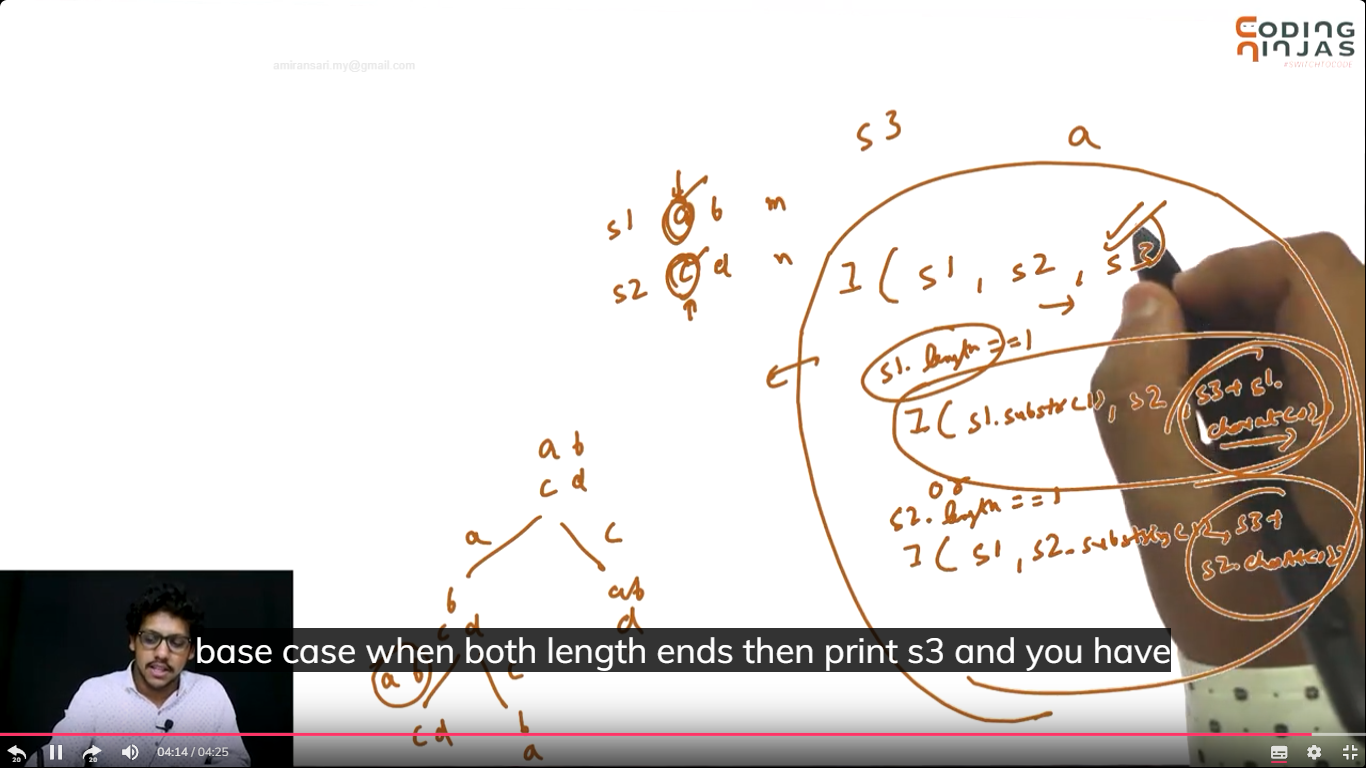 CODING
NINJAS
#SWITCHTOCODE
amiransari.my@gmail.com
s3 a
s1 a b m
s2 c d n
I ( s1 , s2 , s3 )
s1. length == 1
I ( s1.substr(1), s2 , s3 + s1.
charAt(0)
or
s2. length == 1
I ( s1 , s2. substr(1), s3 +
s2. charAt(0)
a b
c d
a c
b ab
c d d
a b c
c d b
a
base case when both length ends then print s3 and you have
20 20 04:14 / 04:25